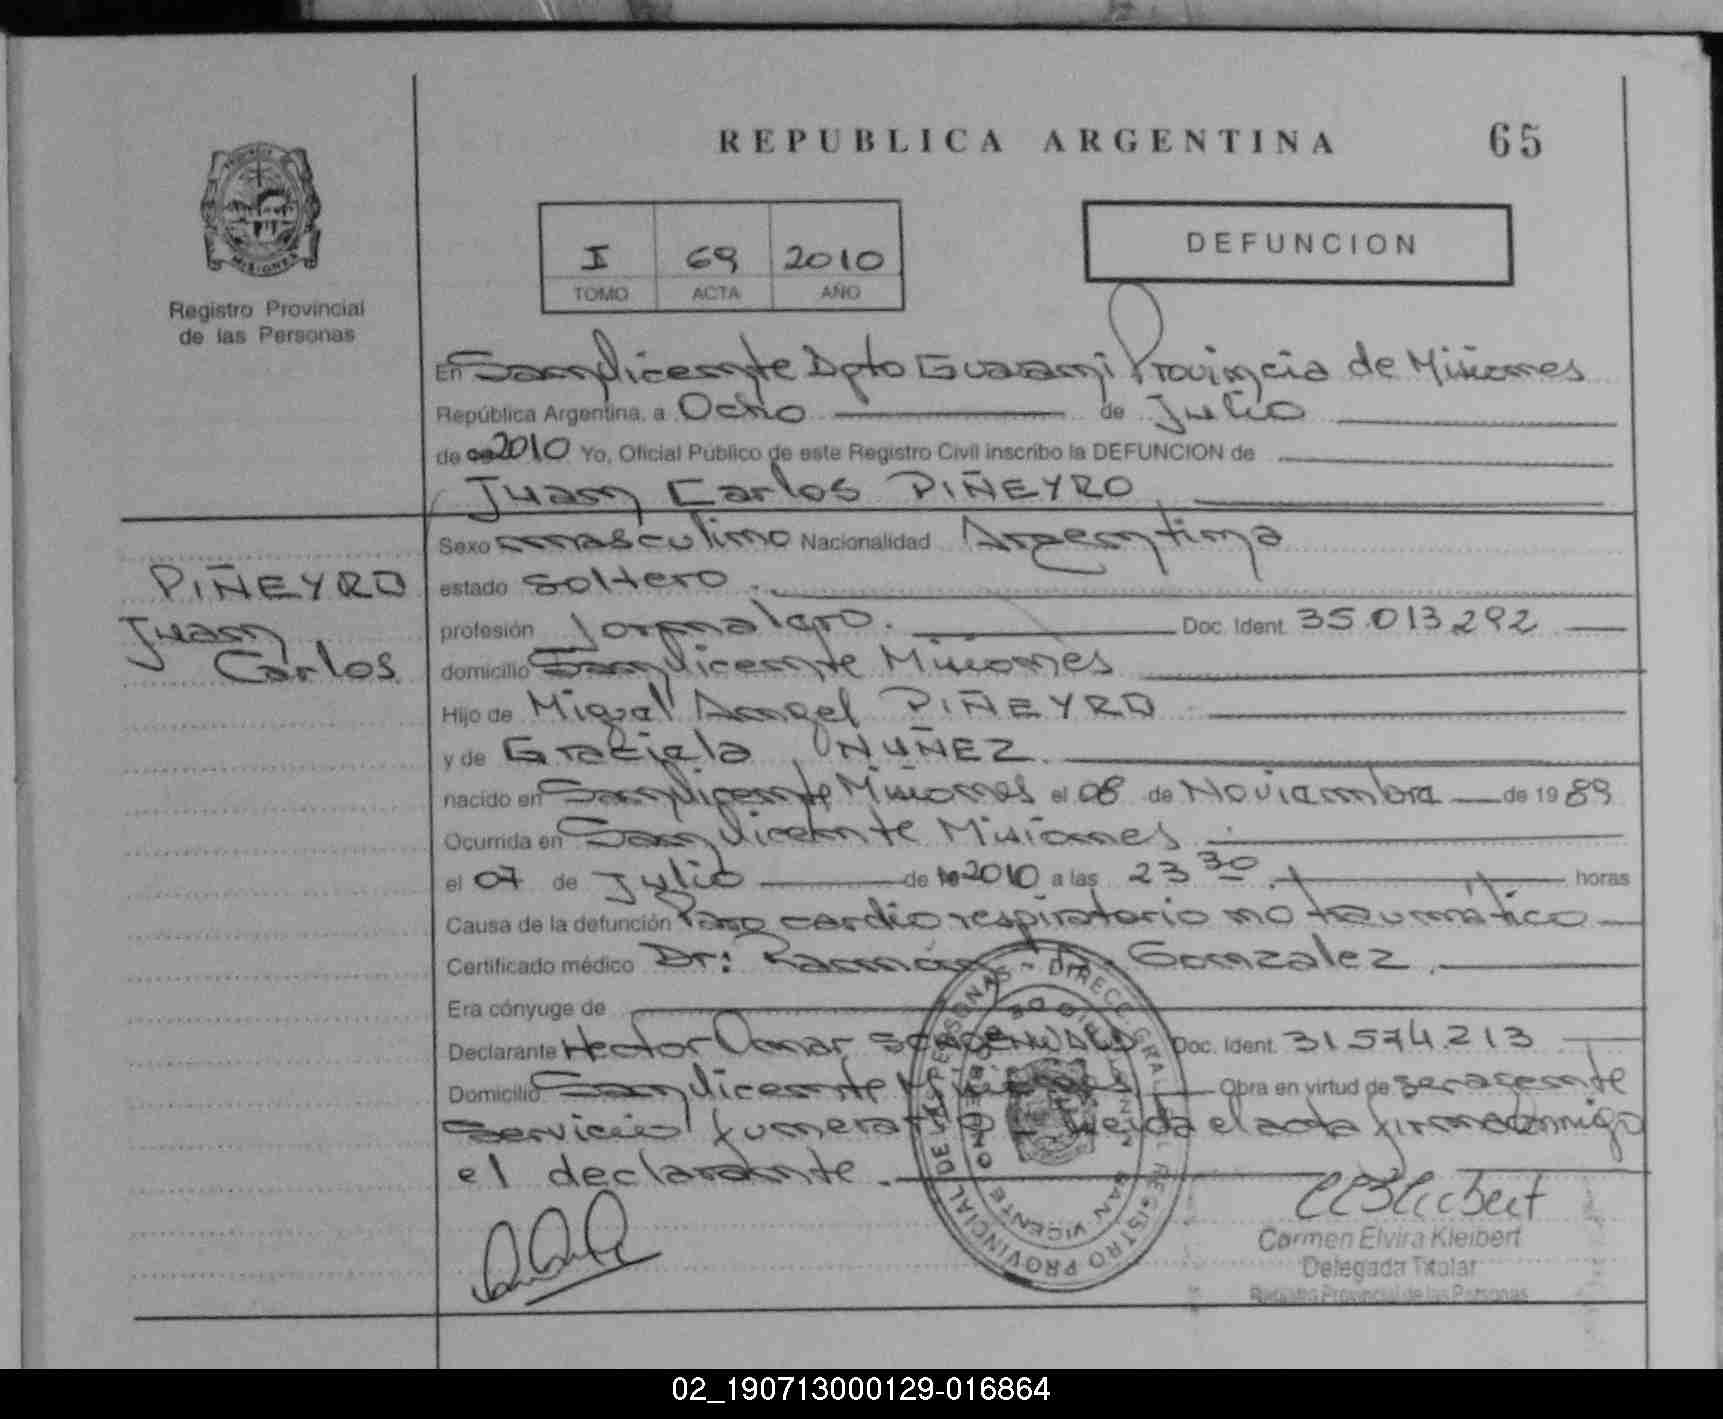 REPUBLICA ARGENTINA 65
PROVINCIA DE
MISIONES
Registro Provincial
de las Personas
I 69 2010
TOMO ACTA AÑO
DEFUNCION
En San Vicente Dpto Guarani Provincia de Misiones
República Argentina, a Ocho de Julio
de 2010 Yo, Oficial Público de este Registro Civil inscribo la DEFUNCION de
Juan Carlos PIÑEYRO
PIÑEYRO
Juan
Carlos
Sexo masculino Nacionalidad Argentina
estado soltero.
profesión Jornalero. Doc. Ident. 35.013.292
domicilio San Vicente Misiones
Hijo de Miguel Angel PIÑEYRO
y de Graciela NUÑEZ
nacido en San Vicente Misiones el 08 de Noviembre de 1989
Ocurrida en San Vicente Misiones
el 07 de Julio de 2010 a las 23 30 horas
Causa de la defunción Paro cardio respiratorio no traumático
Certificado médico Dr: Ramón A. Gonzalez.
Era cónyuge de
Declarante Hector Omar SCHOENWALD Doc. Ident. 31.574.213
Domicilio San Vicente Misiones Obra en virtud de ser agente
Servicios funerario Leida el acta firma conmigo
el declarante.
DIRECC. GRAL. DEL REGISTRO PROVINCIAL DE LAS PERSONAS
SAN VICENTE
Carmen Elvira Kleibert
Delegada Titular
Registro Provincial de las Personas
02_190713000129-016864